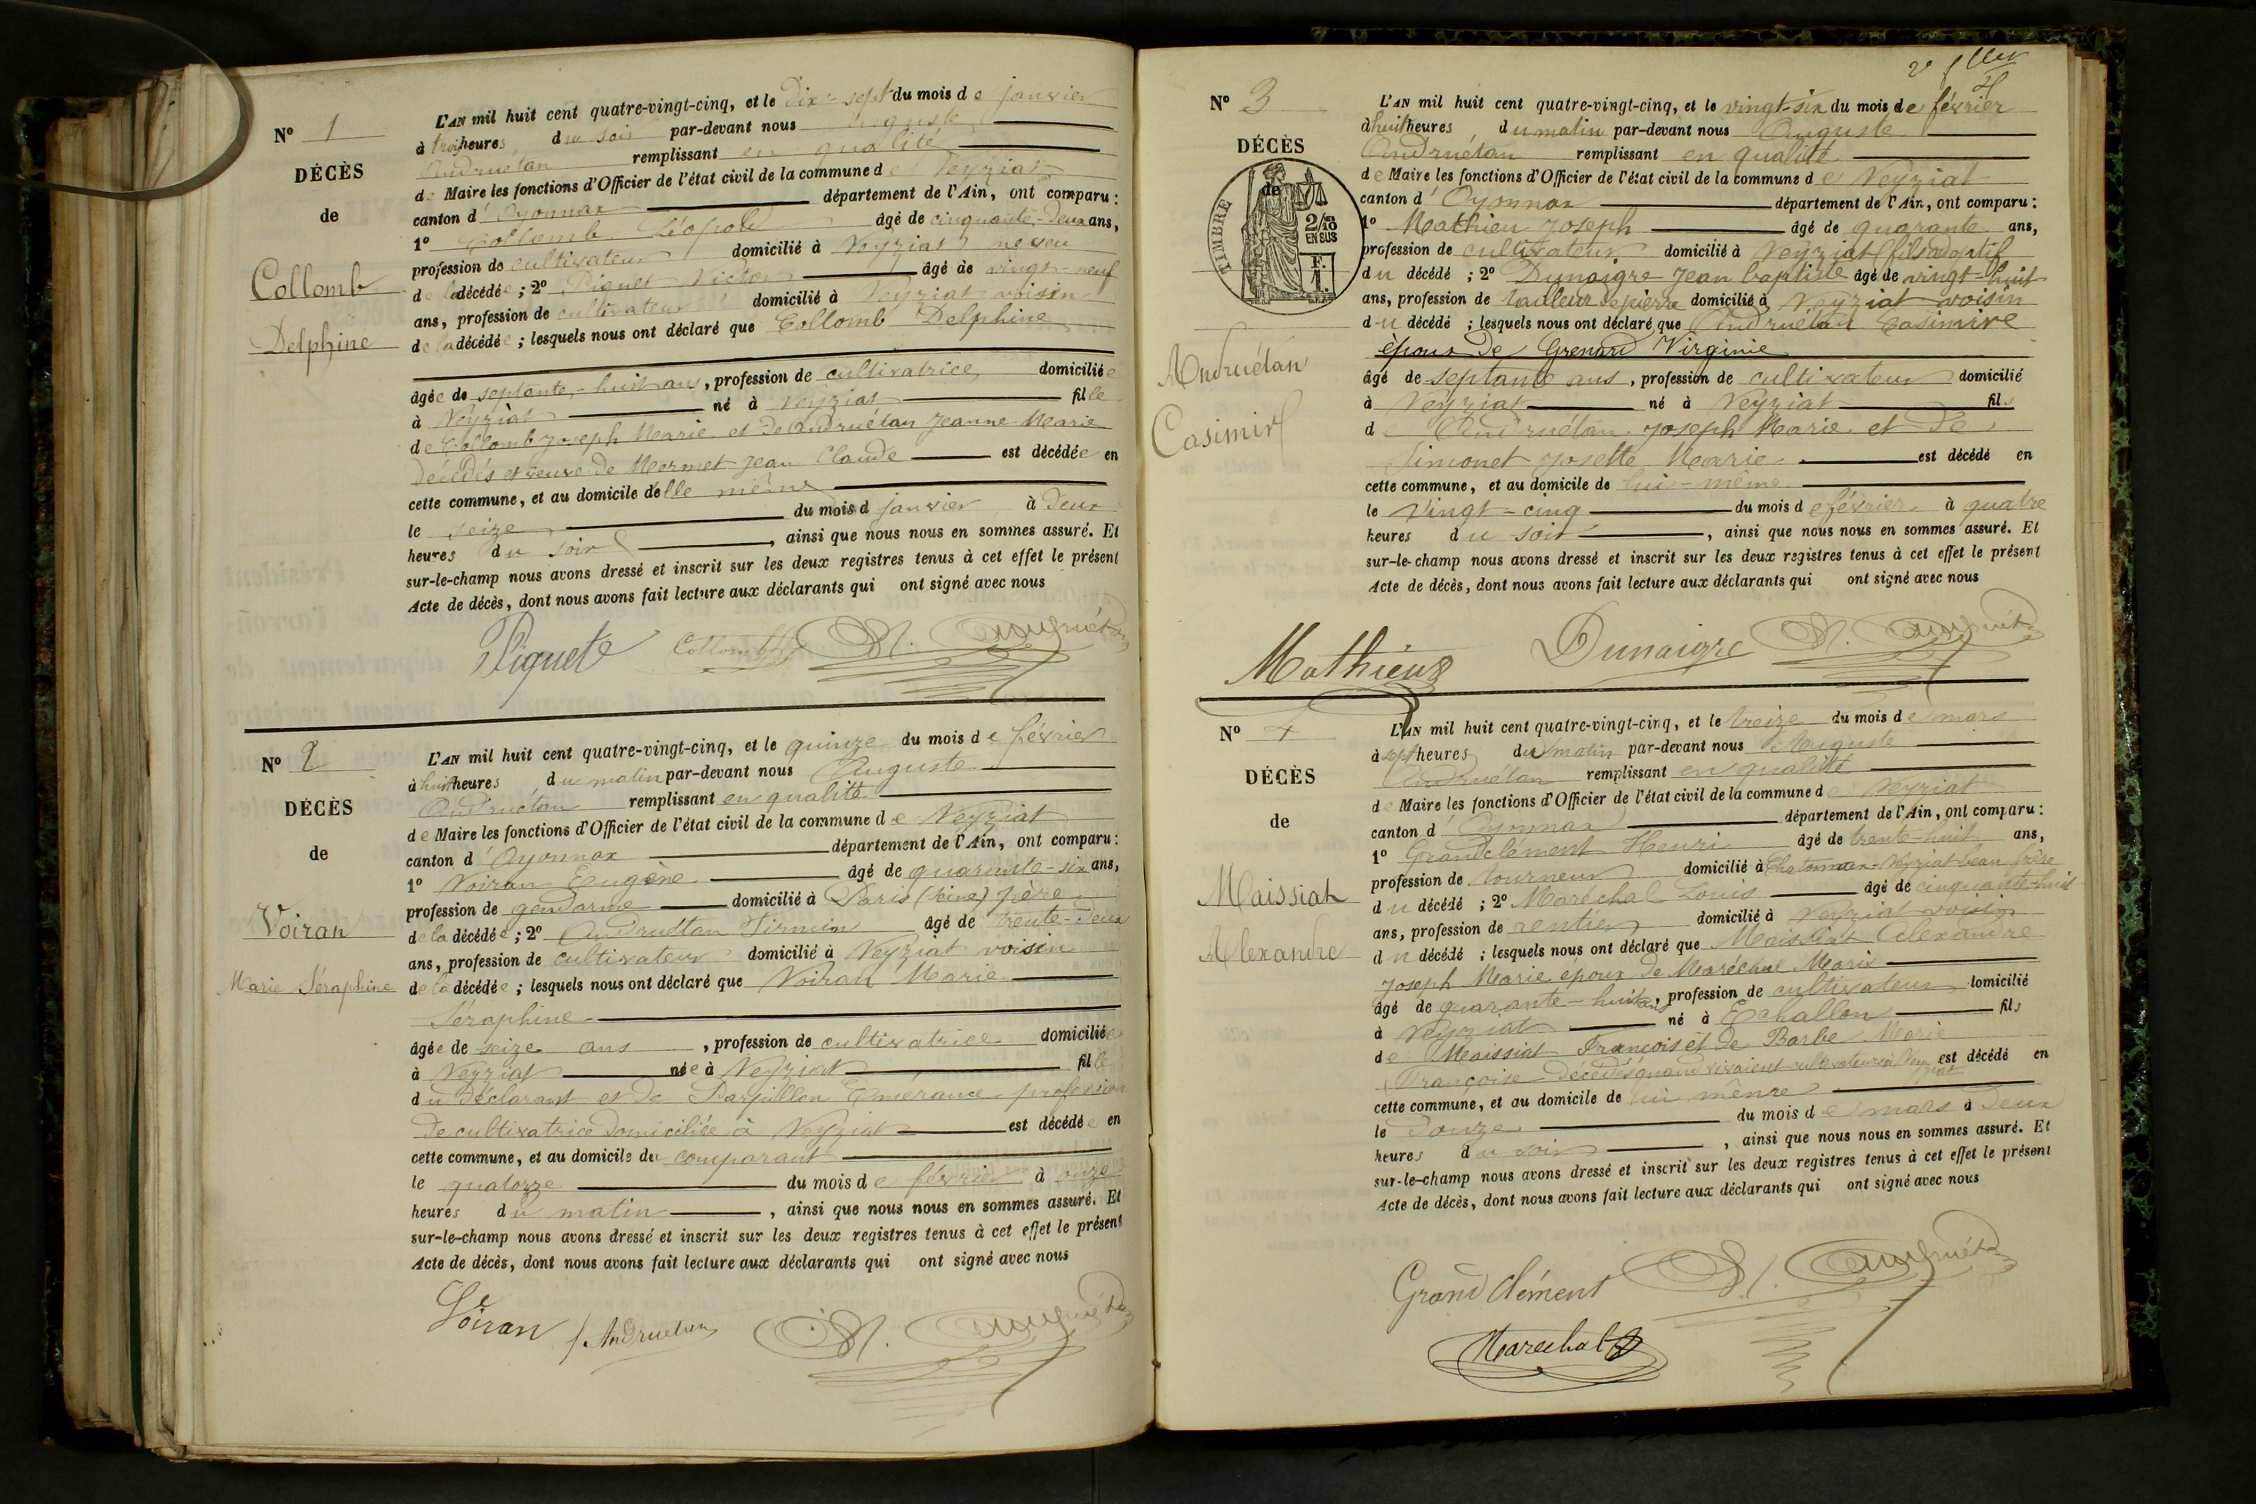 N° 1
DÉCÈS
de
Collomb
Delphine
L'AN mil huit cent quatre-vingt-cinq, et le Dix-sept du mois de janvier
à trois heures du soir par-devant nous Auguste
Andruétan remplissant en qualité
de Maire les fonctions d'Officier de l'état civil de la commune de Veyziat
canton d'Oyonnax département de l'Ain, ont comparu :
1° Collomb Léopold âgé de cinquante-deux ans,
profession de cultivateur domicilié à Veyziat neveu
de la décédée ; 2° Piquet Victor âgé de vingt-neuf
ans, profession de cultivateur domicilié à Veyziat voisin
de la décédée ; lesquels nous ont déclaré que Collomb Delphine
âgée de septante-huit ans, profession de cultivatrice domiciliée
à Veyziat né à Veyziat fille
de Collomb Joseph Marie et de Andruétan Jeanne Marie
décédés et veuve de Mermet Jean Claude est décédée en
cette commune, et au domicile d'elle même
le seize du mois d janvier à deux
heures du soir, ainsi que nous nous en sommes assuré. Et
sur-le-champ nous avons dressé et inscrit sur les deux registres tenus à cet effet le présent
Acte de décès, dont nous avons fait lecture aux déclarants qui ont signé avec nous
Piquet Collomb A. Andruétan
N° 2
DÉCÈS
de
Voiran
Marie Séraphine
L'AN mil huit cent quatre-vingt-cinq, et le quinze du mois de février
à huit heures du matin par-devant nous Auguste
Andruétan remplissant en qualité
de Maire les fonctions d'Officier de l'état civil de la commune de Veyziat
canton d'Oyonnax département de l'Ain, ont comparu :
1° Voiran Eugène âgé de quarante-six ans,
profession de gendarme domicilié à Paris (Seine) père
de la décédée ; 2° Andruétan Firmin âgé de trente-deux
ans, profession de cultivateur domicilié à Veyziat voisin
de la décédée ; lesquels nous ont déclaré que Voiran Marie
Séraphine
âgée de seize ans, profession de cultivatrice domiciliée
à Veyziat née à Veyziat fille
du déclarant et de Emérance profession
de cultivatrice domiciliée à Veyziat est décédée en
cette commune, et au domicile du comparant
le quatorze du mois de février à onze
heures du matin, ainsi que nous nous en sommes assuré. Et
sur-le-champ nous avons dressé et inscrit sur les deux registres tenus à cet effet le présent
Acte de décès, dont nous avons fait lecture aux déclarants qui ont signé avec nous
Voiran f. Andruetan A. Andruétan
N° 3
DÉCÈS
de
TIMBRE
2/10
EN SUS
F.
1.
Andruétan
Casimir
L'AN mil huit cent quatre-vingt-cinq, et le vingt-six du mois de février
à huit heures du matin par-devant nous Auguste
Andruétan remplissant en qualité
de Maire les fonctions d'Officier de l'état civil de la commune de Veyziat
canton d'Oyonnax département de l'Ain, ont comparu :
1° Mathieu Joseph âgé de quarante ans,
profession de cultivateur domicilié à Veyziat fils adoptif
du décédé ; 2° Dunaigre Jean baptiste âgé de vingt-huit
ans, profession de tailleur de pierre domicilié à Veyziat voisin
du décédé ; lesquels nous ont déclaré que Andruétan Casimire
époux de Grenard Virginie
âgé de septante ans, profession de cultivateur domicilié
à Veyziat né à Veyziat fils
de Andruétan Joseph Marie et de
Simonet Josette Marie est décédé en
cette commune, et au domicile de lui-même
le vingt-cinq du mois de février à quatre
heures du soir, ainsi que nous nous en sommes assuré. Et
sur-le-champ nous avons dressé et inscrit sur les deux registres tenus à cet effet le présent
Acte de décès, dont nous avons fait lecture aux déclarants qui ont signé avec nous
Mathieux Dunaigre A. Andruétan
N° 4
DÉCÈS
de
Maissiat
Alexandre
L'AN mil huit cent quatre-vingt-cinq, et le treize du mois de mars
à sept heures du matin par-devant nous Auguste
Andruétan remplissant en qualité
de Maire les fonctions d'Officier de l'état civil de la commune de Veyziat
canton d'Oyonnax département de l'Ain, ont comparu :
1° Grandclément Henri âgé de trente-huit ans,
profession de tourneur domicilié à Chatonnax-Veyziat beau frère
du décédé ; 2° Maréchal Louis âgé de cinquante-huit
ans, profession de rentier domicilié à Veyziat voisin
du décédé ; lesquels nous ont déclaré que Maissiat Alexandre
Joseph Marie époux de Maréchal Marie
âgé de quarante-huit ans, profession de cultivateur domicilié
à Veyziat né à Echallon fils
de Maissiat François et de Barbe Marie
Françoise décédés quand vivaient cultivateurs à Veyziat est décédé en
cette commune, et au domicile de lui même
le douze du mois de mars à deux
heures du soir, ainsi que nous nous en sommes assuré. Et
sur-le-champ nous avons dressé et inscrit sur les deux registres tenus à cet effet le présent
Acte de décès, dont nous avons fait lecture aux déclarants qui ont signé avec nous
Grand Clément A. Andruétan
Marechal